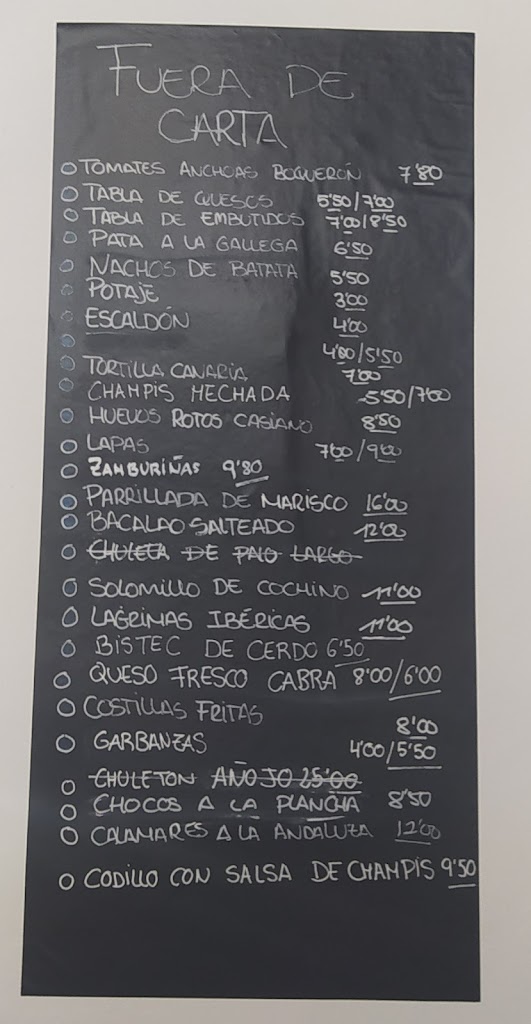 FUERA DE
CARTA
TOMATES ANCHOAS BOQUERÓN 7'80
TABLA DE QUESOS 5'50/7'00
TABLA DE EMBUTIDOS 7'00/8'50
PATA A LA GALLEGA 6'50
NACHOS DE BATATA 5'50
POTAJE 3'00
ESCALDÓN 4'00
4'00/5'50
TORTILLA CANARIA 7'00
CHAMPIS MECHADA 5'50/7'00
HUEVOS ROTOS CASIANO 8'50
LAPAS 7'00/9'00
ZAMBURIÑAS 9'80
PARRILLADA DE MARISCO 16'00
BACALAO SALTEADO 12'00
CHULETA DE PALO LARGO
SOLOMILLO DE COCHINO 11'00
LAGRIMAS IBÉRICAS 11'00
BISTEC DE CERDO 6'50
QUESO FRESCO CABRA 8'00/6'00
COSTILLAS FRITAS 8'00
GARBANZAS 4'00/5'50
CHULETON AÑOJO 25'00
CHOCOS A LA PLANCHA 8'50
CALAMARES A LA ANDALUZA 12'00
CODILLO CON SALSA DE CHAMPIS 9'50